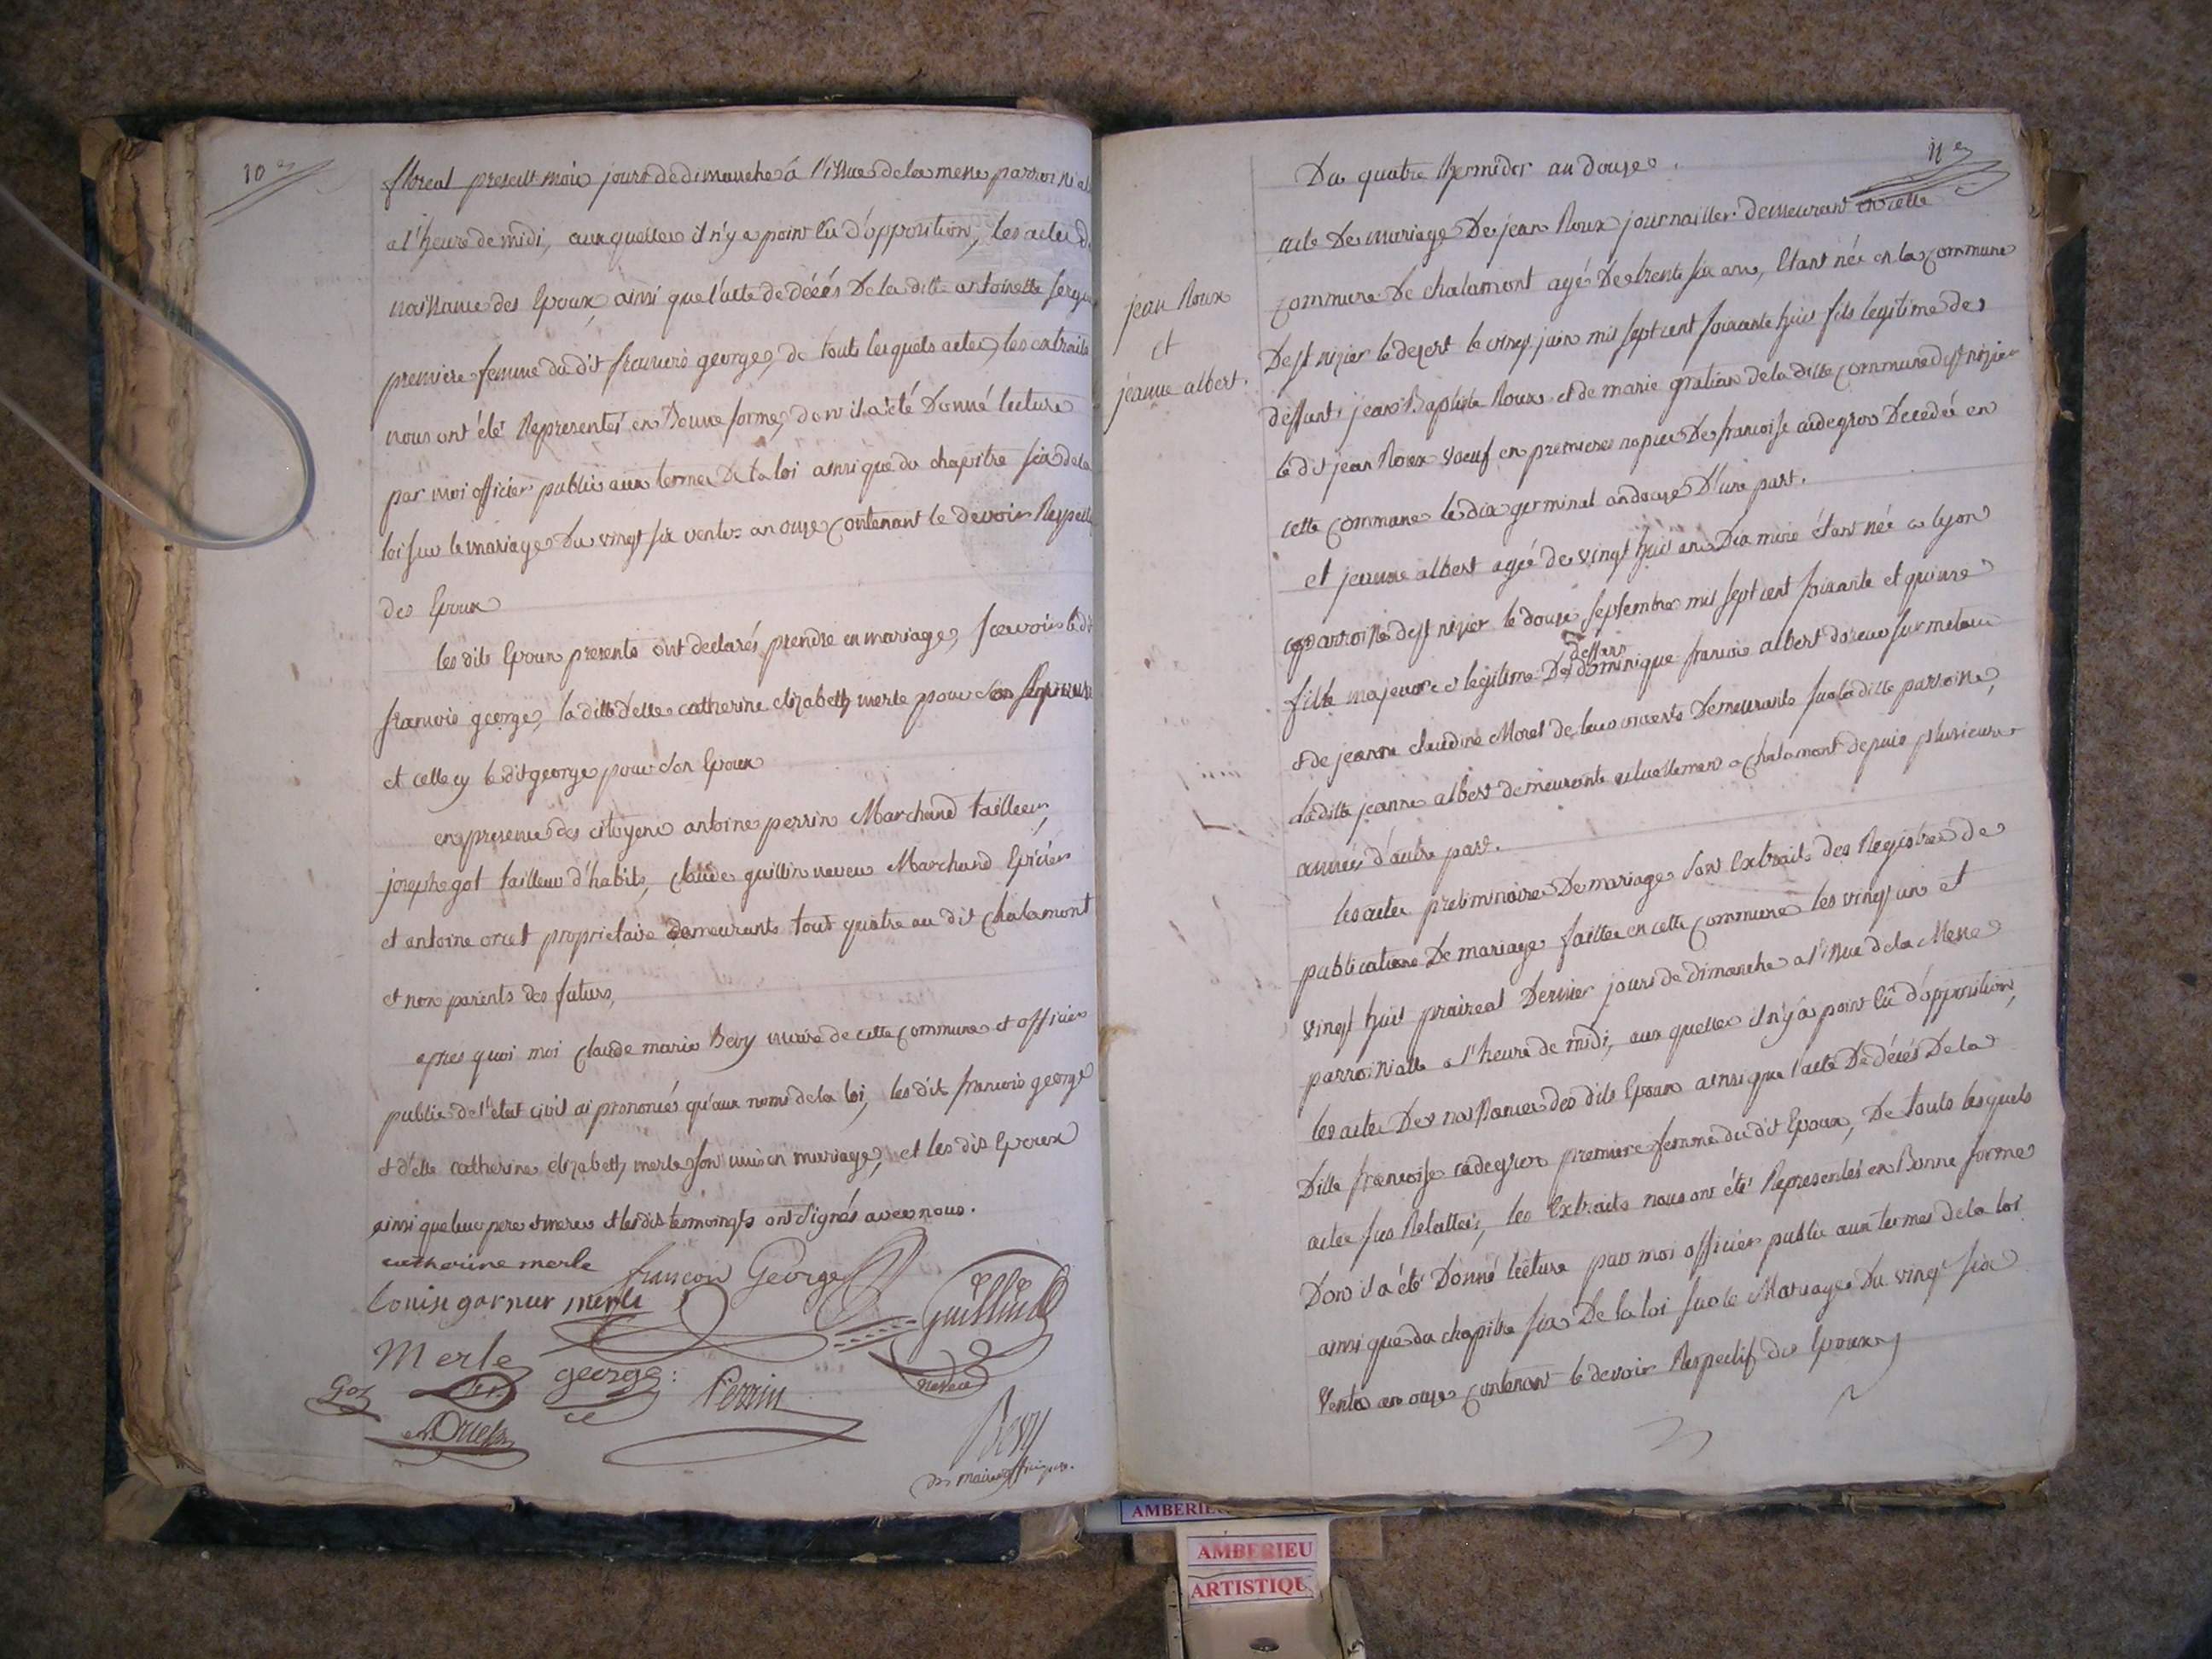 10e
floreal present mois jours de dimanche à l'issue de la messe parroissial
a l'heure de midi, aux quelles il n'y a point eû d'opposition, les actes de
naissance des Epoux, ainsi que l'acte de décés De la ditte antoinette
premiere femme du dit francois george, de touts lesquels actes, les extraits
nous ont été Representés en Bonne forme, dont il a été Donné lecture
par moi officier public aux termes De la loi ainsi que du chapitre six de la
loi sur le mariage Du vingt six ventos an onze Contenant le devoir Respectif
des Epoux
les dits Epoux presents ont declarés prendre en mariage, scavoir le dit
francois george, la ditte delle catherine elizabeth merle pour son Epouse
et celle cy le dit george pour son Epoux
en presence des citoyens antoine perrin Marchand tailleur,
joseph got tailleur d'habits, claude guillin neveu Marchand Epicier
et antoine orcet proprietaire demeurants tout quatre au dit chalamont
et non parents des futurs,
apres quoi moi claude marie Bevy maire de cette commune et officier
public de l'état civil ai prononcés qu'aux noms de la loi, les dits francois george
et d'elle catherine elizabeth merle sont unis en mariage, et les dits Epoux
ainsi que leur pere et meres et les dits temoingts ont signés avec nous.
catherine merle
francois George
Louise garnier merle
Guillin
neveu
Merle
george
Perrin
Got
Orcet
Bevy
maire
11e
Du quatre thermidor an douze.
jean Roux
et
jeanne albert.
acte De mariage De jean Roux journailler demeurant en cette
commune De chalamont agé De trente six ans, Etant née en la commune
De st nizier le desert le vingt juin mil sept cent soixante huit fils legitime de
deffunt jean Baptiste Roux et de marie gratian de la ditte commune de st nizier
le dit jean Roux voeuf en premieres nopces De francoise cadegros Decedée en
cette commune le dix germinal an douze D'une part.
et jeanne albert agée de vingt huit ans Dix mois étant née a lyon
parroisse de st nizier le douze septembre mil sept cent soixante et quinze
fille majeure et legitime De deffunt dominique francois albert doreur sur metaux
et de jeanne claudine Morel de leurs vivants Demeurants sur la ditte parroisse,
la ditte jeanne albert demeurante actuellement a Chalamont depuis plusieurs
années d'autre part.
les actes preliminaires De mariage sont Extraits des Registres de
publications De mariage faittes en cette commune les vingt un et
vingt huit praireal Dernier jours de dimanche a l'issue de la Messe
parroissialle a l'heure de midi, aux quelles il n'y a point eû d'opposition,
les actes De naissances des dits Epoux ainsi que l'acte De décés De la
Ditte francoise cadegros premiere femme du dit Epoux, De touts lesquels
actes sus Relattés, les Extraits nous ont été Representés en Bonne forme
Dont il a été Donné lecture par moi officier public aux termes de la loi
ainsi que du chapitre six De la loi sur le Mariage Du vingt six
Ventos an onze contenant le devoir Respectif des Epoux
AMBERIEU
ARTISTIQU